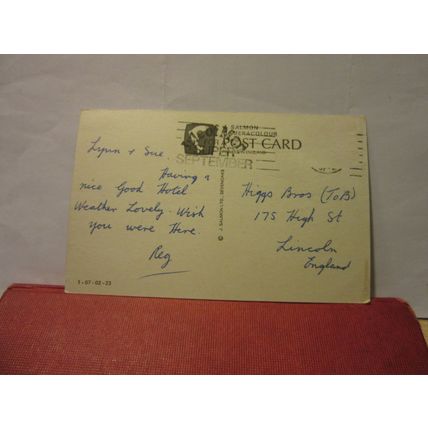 J. SALMON
CAMERACOLOUR
POST CARD
SEPTEMBER
Lynn + Sue.
Having a
nice Good Hotel
Weather Lovely. Wish
you were Here.
Reg
1-07-02-23
© J. SALMON LTD., SEVENOAKS
Higgs Bros (ToB)
175 High St
Lincoln
England